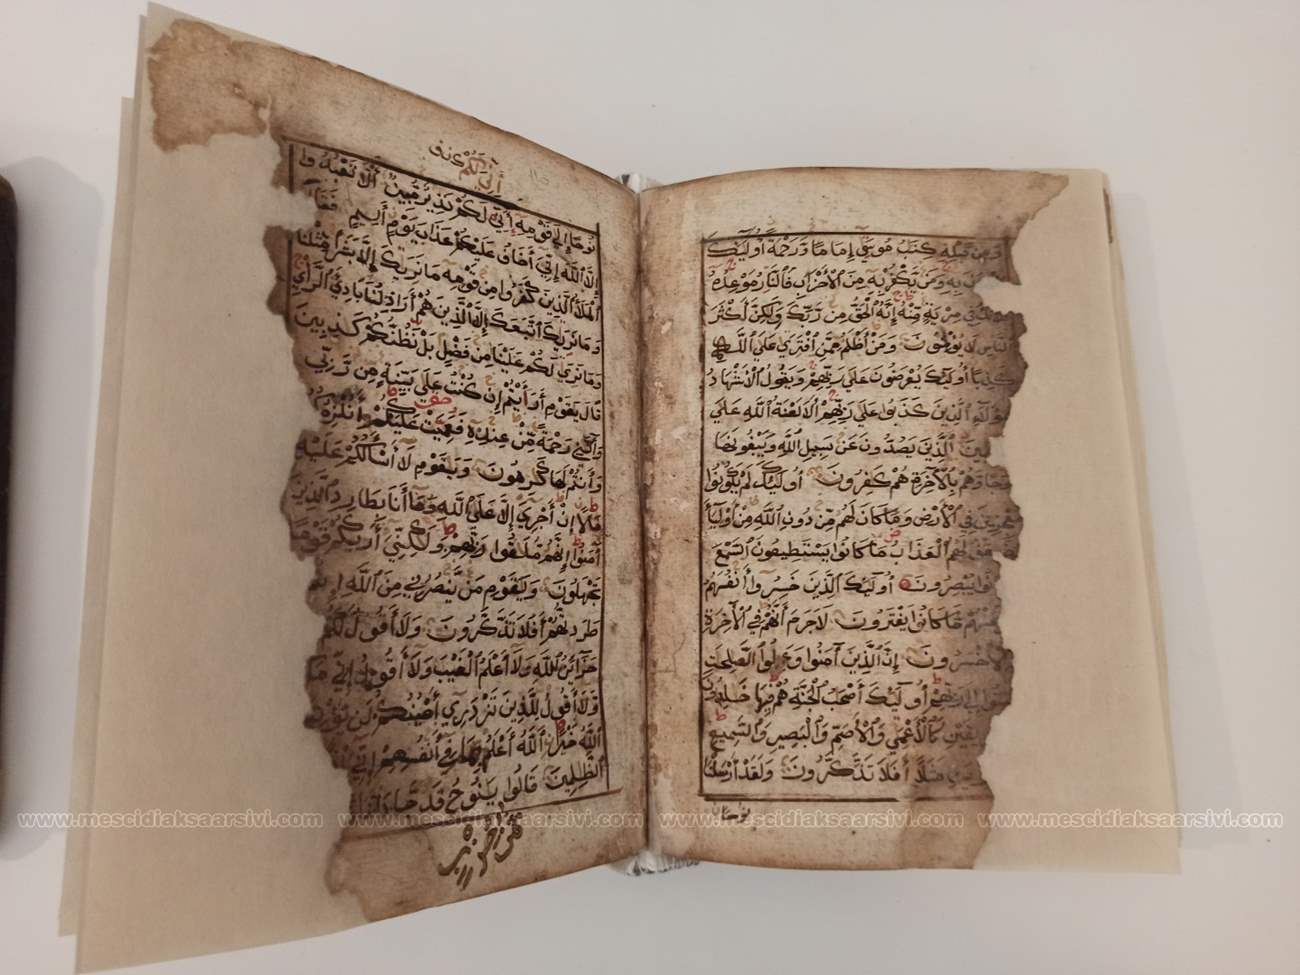 وَمِن قَبْلِهِ كِتَٰبُ مُوسَىٰٓ إِمَامًا وَرَحْمَةً أُولَٰٓئِكَ
بِهِۦ وَمَن يَكْفُرْ بِهِۦ مِنَ ٱلْأَحْزَابِ فَٱلنَّارُ مَوْعِدُهُ
فِي مِرْيَةٍ مِّنْهُ إِنَّهُ ٱلْحَقُّ مِن رَّبِّكَ وَلَٰكِنَّ أَكْثَرَ
ٱلنَّاسِ لَا يُؤْمِنُونَ وَمَنْ أَظْلَمُ مِمَّنِ ٱفْتَرَىٰ عَلَى ٱللَّهِ
كَذِبًا أُولَٰٓئِكَ يُعْرَضُونَ عَلَىٰ رَبِّهِمْ وَيَقُولُ ٱلْأَشْهَادُ
هَٰٓؤُلَآءِ ٱلَّذِينَ كَذَبُوا عَلَىٰ رَبِّهِمْ أَلَا لَعْنَةُ ٱللَّهِ عَلَى
ٱلَّذِينَ يَصُدُّونَ عَن سَبِيلِ ٱللَّهِ وَيَبْغُونَهَا
وَهُم بِٱلْآخِرَةِ هُمْ كَٰفِرُونَ أُولَٰٓئِكَ لَمْ يَكُونُوا
مُعْجِزِينَ فِي ٱلْأَرْضِ وَمَا كَانَ لَهُم مِّن دُونِ ٱللَّهِ مِنْ أَوْلِيَآءَ
لَهُمُ ٱلْعَذَابُ مَا كَانُوا يَسْتَطِيعُونَ ٱلسَّمْعَ
يُبْصِرُونَ أُولَٰٓئِكَ ٱلَّذِينَ خَسِرُوا أَنفُسَهُمْ
مَّا كَانُوا يَفْتَرُونَ لَا جَرَمَ أَنَّهُمْ فِي ٱلْآخِرَةِ
ٱلْأَخْسَرُونَ إِنَّ ٱلَّذِينَ آمَنُوا وَعَمِلُوا ٱلصَّٰلِحَٰتِ
إِلَىٰ رَبِّهِمْ أُولَٰٓئِكَ أَصْحَٰبُ ٱلْجَنَّةِ هُمْ فِيهَا خَٰلِدُونَ
كَٱلْأَعْمَىٰ وَٱلْأَصَمِّ وَٱلْبَصِيرِ وَٱلسَّمِيعِ
مَثَلًا أَفَلَا تَذَكَّرُونَ وَلَقَدْ أَرْسَلْنَا
نُوحًا
أَنِّي لَكُمْ
نُوحًا إِلَىٰ قَوْمِهِ أَنِّي لَكُمْ نَذِيرٌ مُّبِينٌ أَلَّا تَعْبُدُوا
إِلَّا ٱللَّهَ إِنِّي أَخَافُ عَلَيْكُمْ عَذَابَ يَوْمٍ أَلِيمٍ فَقَالَ
ٱلْمَلَأُ ٱلَّذِينَ كَفَرُوا مِن قَوْمِهِ مَا نَرَىٰكَ إِلَّا بَشَرًا مِّثْلَنَا
وَمَا نَرَىٰكَ ٱتَّبَعَكَ إِلَّا ٱلَّذِينَ هُمْ أَرَاذِلُنَا بَادِيَ ٱلرَّأْيِ
وَمَا نَرَىٰ لَكُمْ عَلَيْنَا مِن فَضْلٍ بَلْ نَظُنُّكُمْ كَٰذِبِينَ
قَالَ يَٰقَوْمِ أَرَأَيْتُمْ إِن كُنتُ عَلَىٰ بَيِّنَةٍ مِّن رَّبِّي
وَآتَٰنِي رَحْمَةً مِّنْ عِندِهِ فَعُمِّيَتْ عَلَيْكُمْ أَنُلْزِمُكُمُوهَا
وَأَنتُمْ لَهَا كَٰرِهُونَ وَيَٰقَوْمِ لَا أَسْأَلُكُمْ عَلَيْهِ
مَالًا إِنْ أَجْرِيَ إِلَّا عَلَى ٱللَّهِ وَمَا أَنَا بِطَارِدِ ٱلَّذِينَ
آمَنُوا إِنَّهُم مُّلَٰقُوا رَبِّهِمْ وَلَٰكِنِّي أَرَىٰكُمْ قَوْمًا
تَجْهَلُونَ وَيَٰقَوْمِ مَن يَنصُرُنِي مِنَ ٱللَّهِ إِن
طَرَدتُّهُمْ أَفَلَا تَذَكَّرُونَ وَلَا أَقُولُ لَكُمْ
خَزَآئِنُ ٱللَّهِ وَلَا أَعْلَمُ ٱلْغَيْبَ وَلَا أَقُولُ إِنِّي مَلَكٌ
وَلَا أَقُولُ لِلَّذِينَ تَزْدَرِي أَعْيُنُكُمْ لَن يُؤْتِيَهُمُ
ٱللَّهُ خَيْرًا ٱللَّهُ أَعْلَمُ بِمَا فِي أَنفُسِهِمْ إِنِّي
ٱلظَّٰلِمِينَ قَالُوا يَٰنُوحُ قَدْ جَادَلْتَنَا
www.mescidiaksaarsivi.com www.mescidiaksaarsivi.com www.mescidiaksaarsivi.com www.mescidiaksaarsivi.com